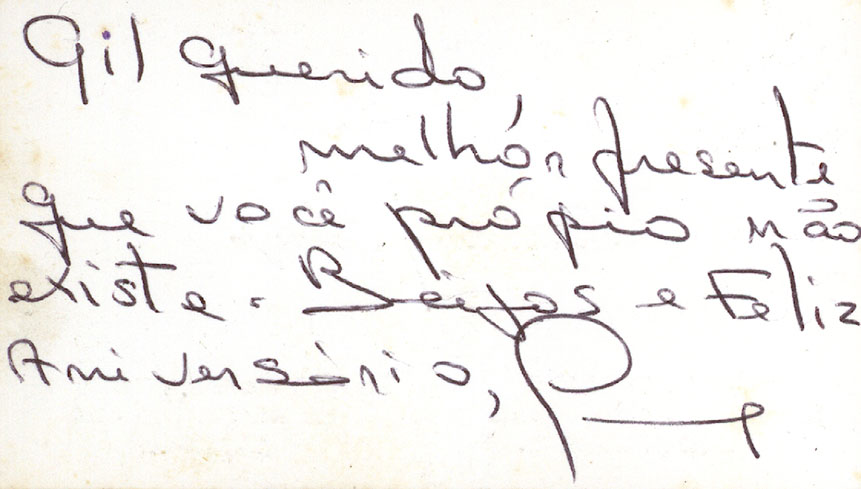 Gil querido,
melhór presente
que você própio não
existe. Beijos e Feliz
Aniversário,